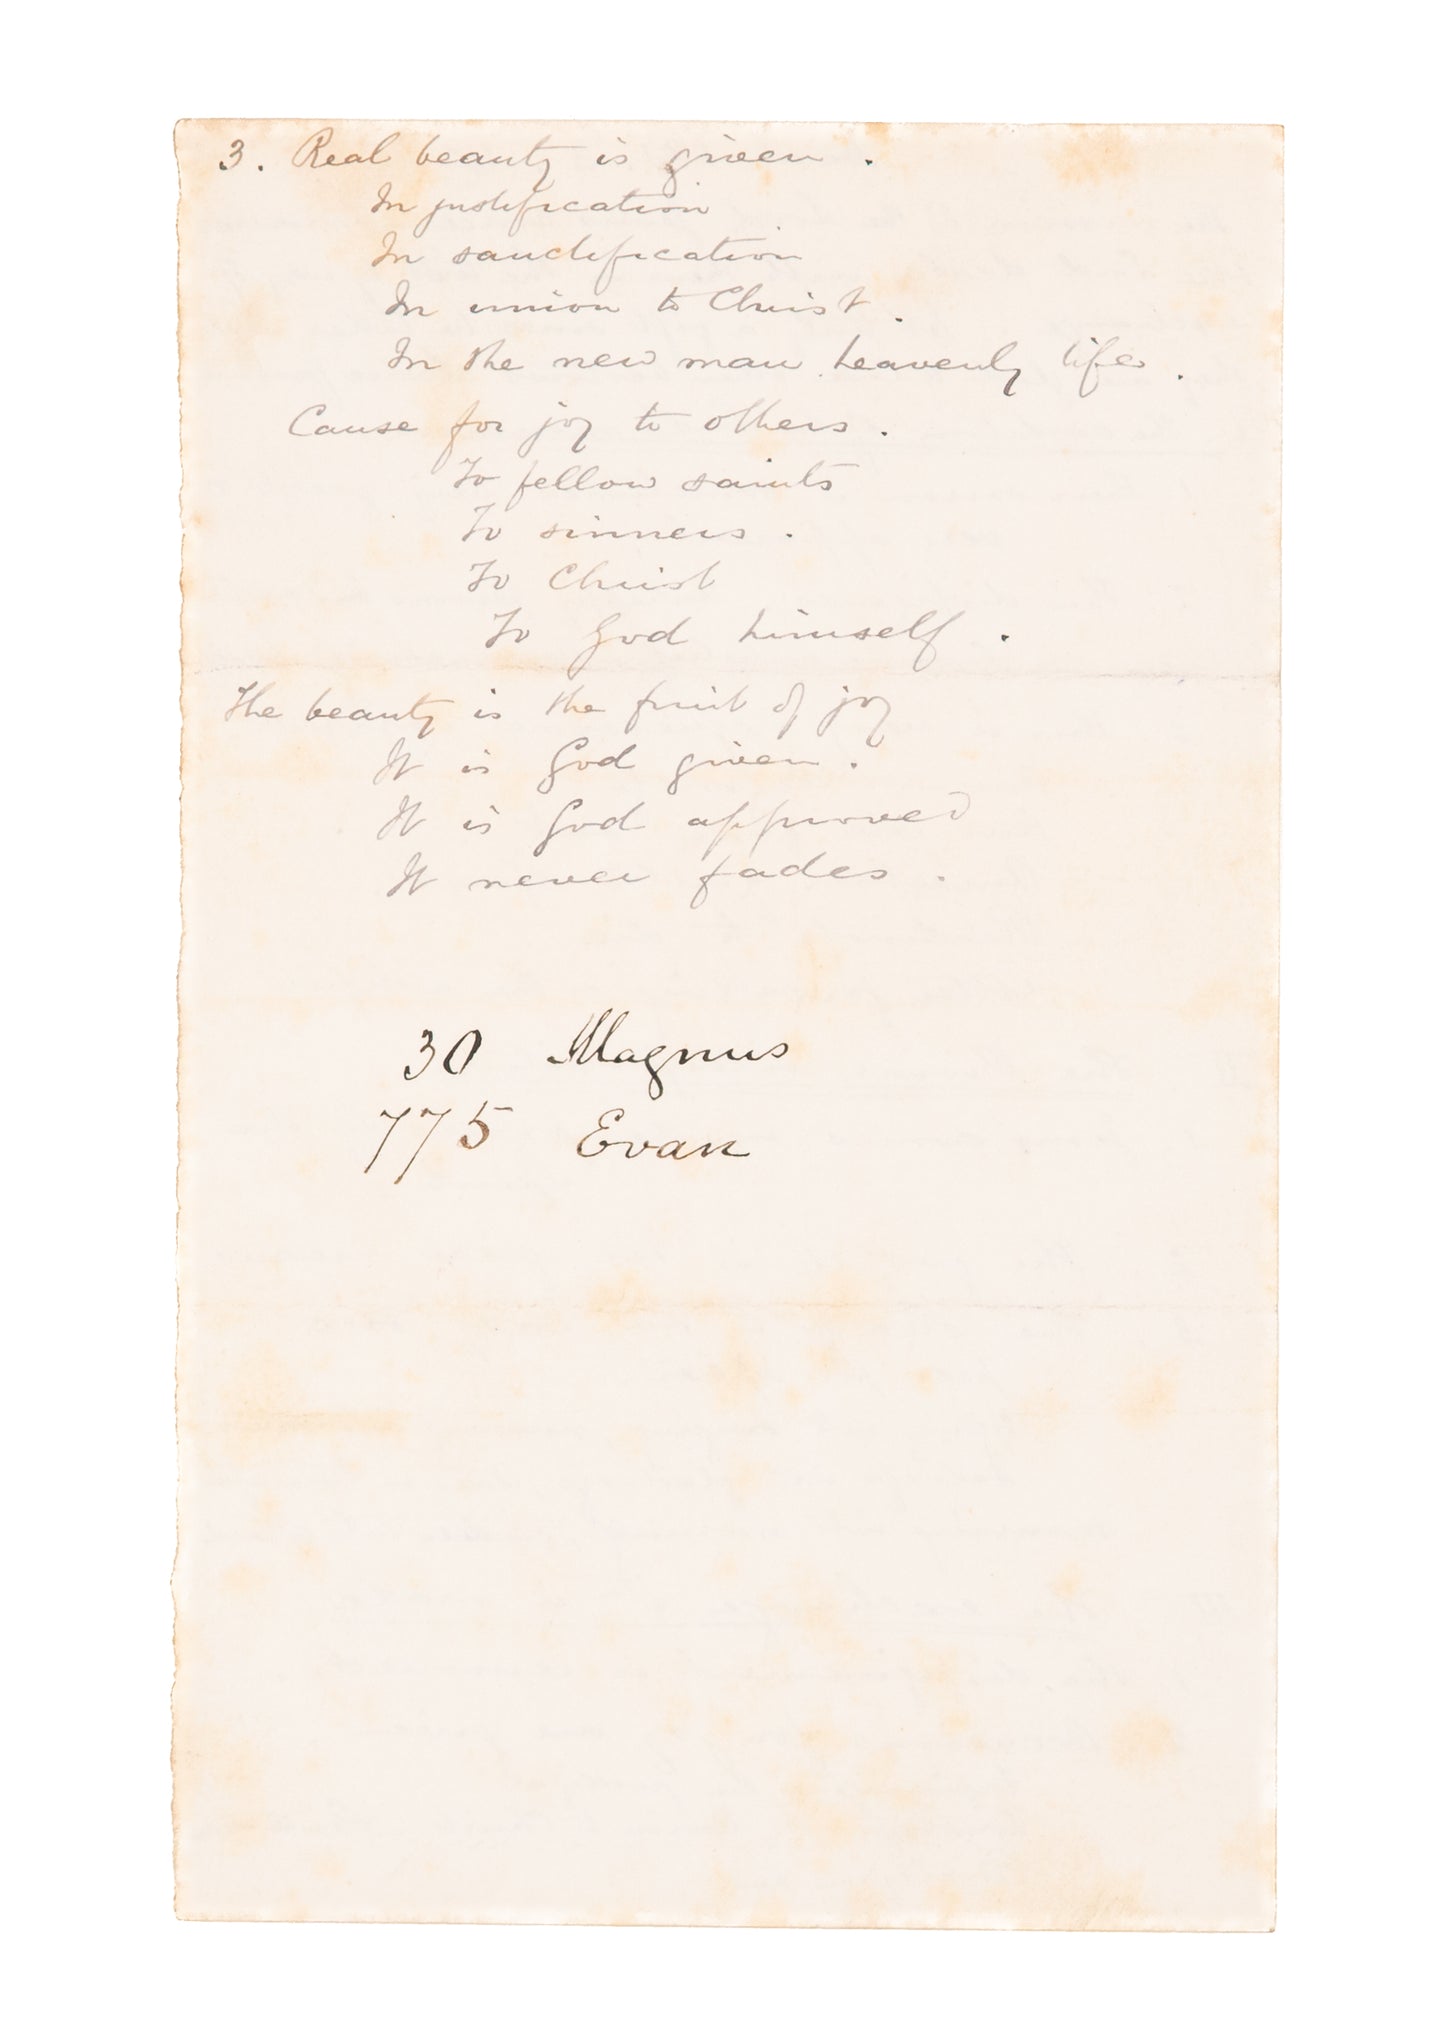 3. Real beauty is given.
In justification
In sanctification
In union to Christ.
In the new man heavenly life.
Cause for joy to others.
To fellow saints
To sinners.
To Christ
To God himself.
The beauty is the fruit of joy
It is God given.
It is God approved
It never fades.
30 Magnus
775 Evan